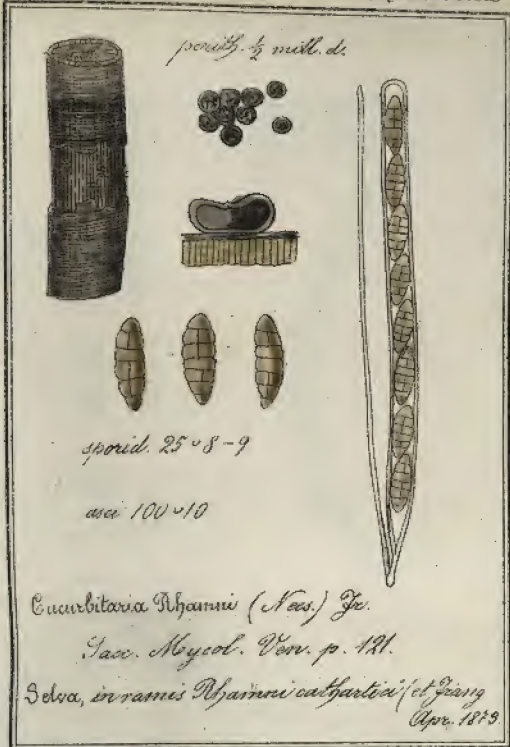 perith. ½ mill. d.
sporid. 25 ᴗ 8-9
asci 100 ᴗ 10
Cucurbitaria Rhamni (Nees.) Fr.
Sacc. Mycol. Ven. p. 121.
Selva, in ramis Rhamni cathartici (et Frang
Apr. 1873